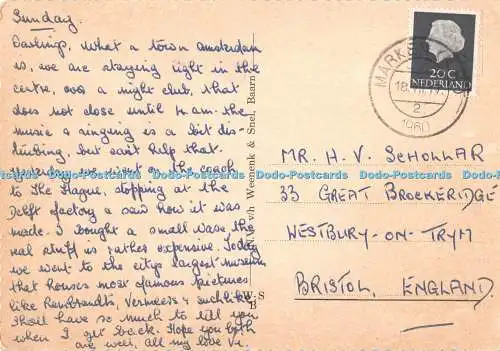 Sunday.
Darlings, What a town Amsterdam
is, we are staying right in the
centre, over a night club, that
does not close until 4 am. the
music & singing is a bit dis-
turbing, but can't help that.
we went on the coach
to the Hague, stopping at the
Delft factory & saw how it was
made. I bought a small vase the
real stuff is rather expensive. Today
we went to the citys largest museum
that houses most famous pictures
like Rembrandts, Vermeers & suchlike
I shall have so much to tell you
when I get back. Hope you both
are well, all my love Vi.
v/h Weenenk & Snel, Baarn
W. S
B
MARKE
18.
2
1960
20 C
NEDERLAND
MR. H. V. SCHOLLAR
33 GREAT BROCKERIDGE
WESTBURY-ON-TRYM
BRISTOL, ENGLAND
Dodo-Postcards Dodo-Postcards Dodo-Postcards Dodo-Postcards